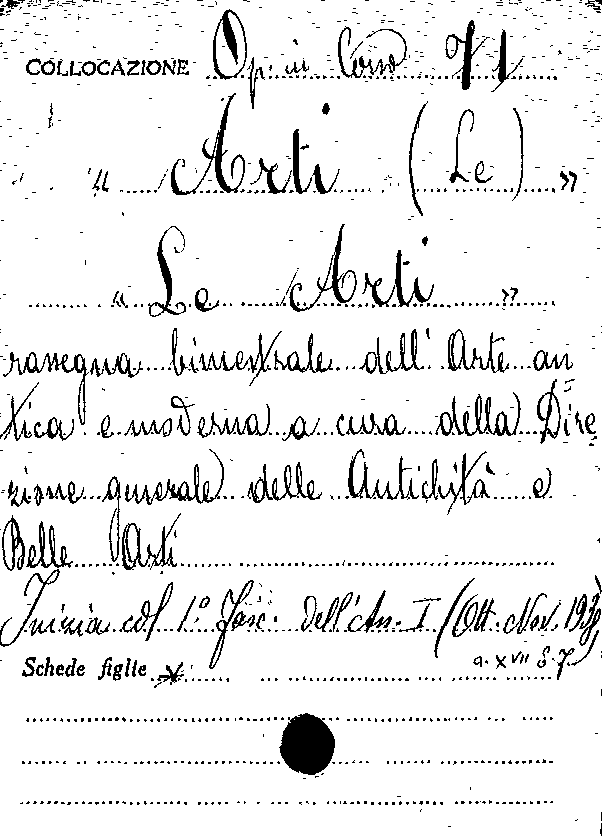 COLLOCAZIONE Op. in Corso 71
" Arti ( Le ) "
" Le Arti "
rassegna bimestrale dell' Arte an=
tica e moderna a cura della Dire=
zione generale delle Antichità e
Belle Arti
Inizia col 1º Fasc. dell'An. I (Ott. Nov. 1938
a. XVII
Schede figlie